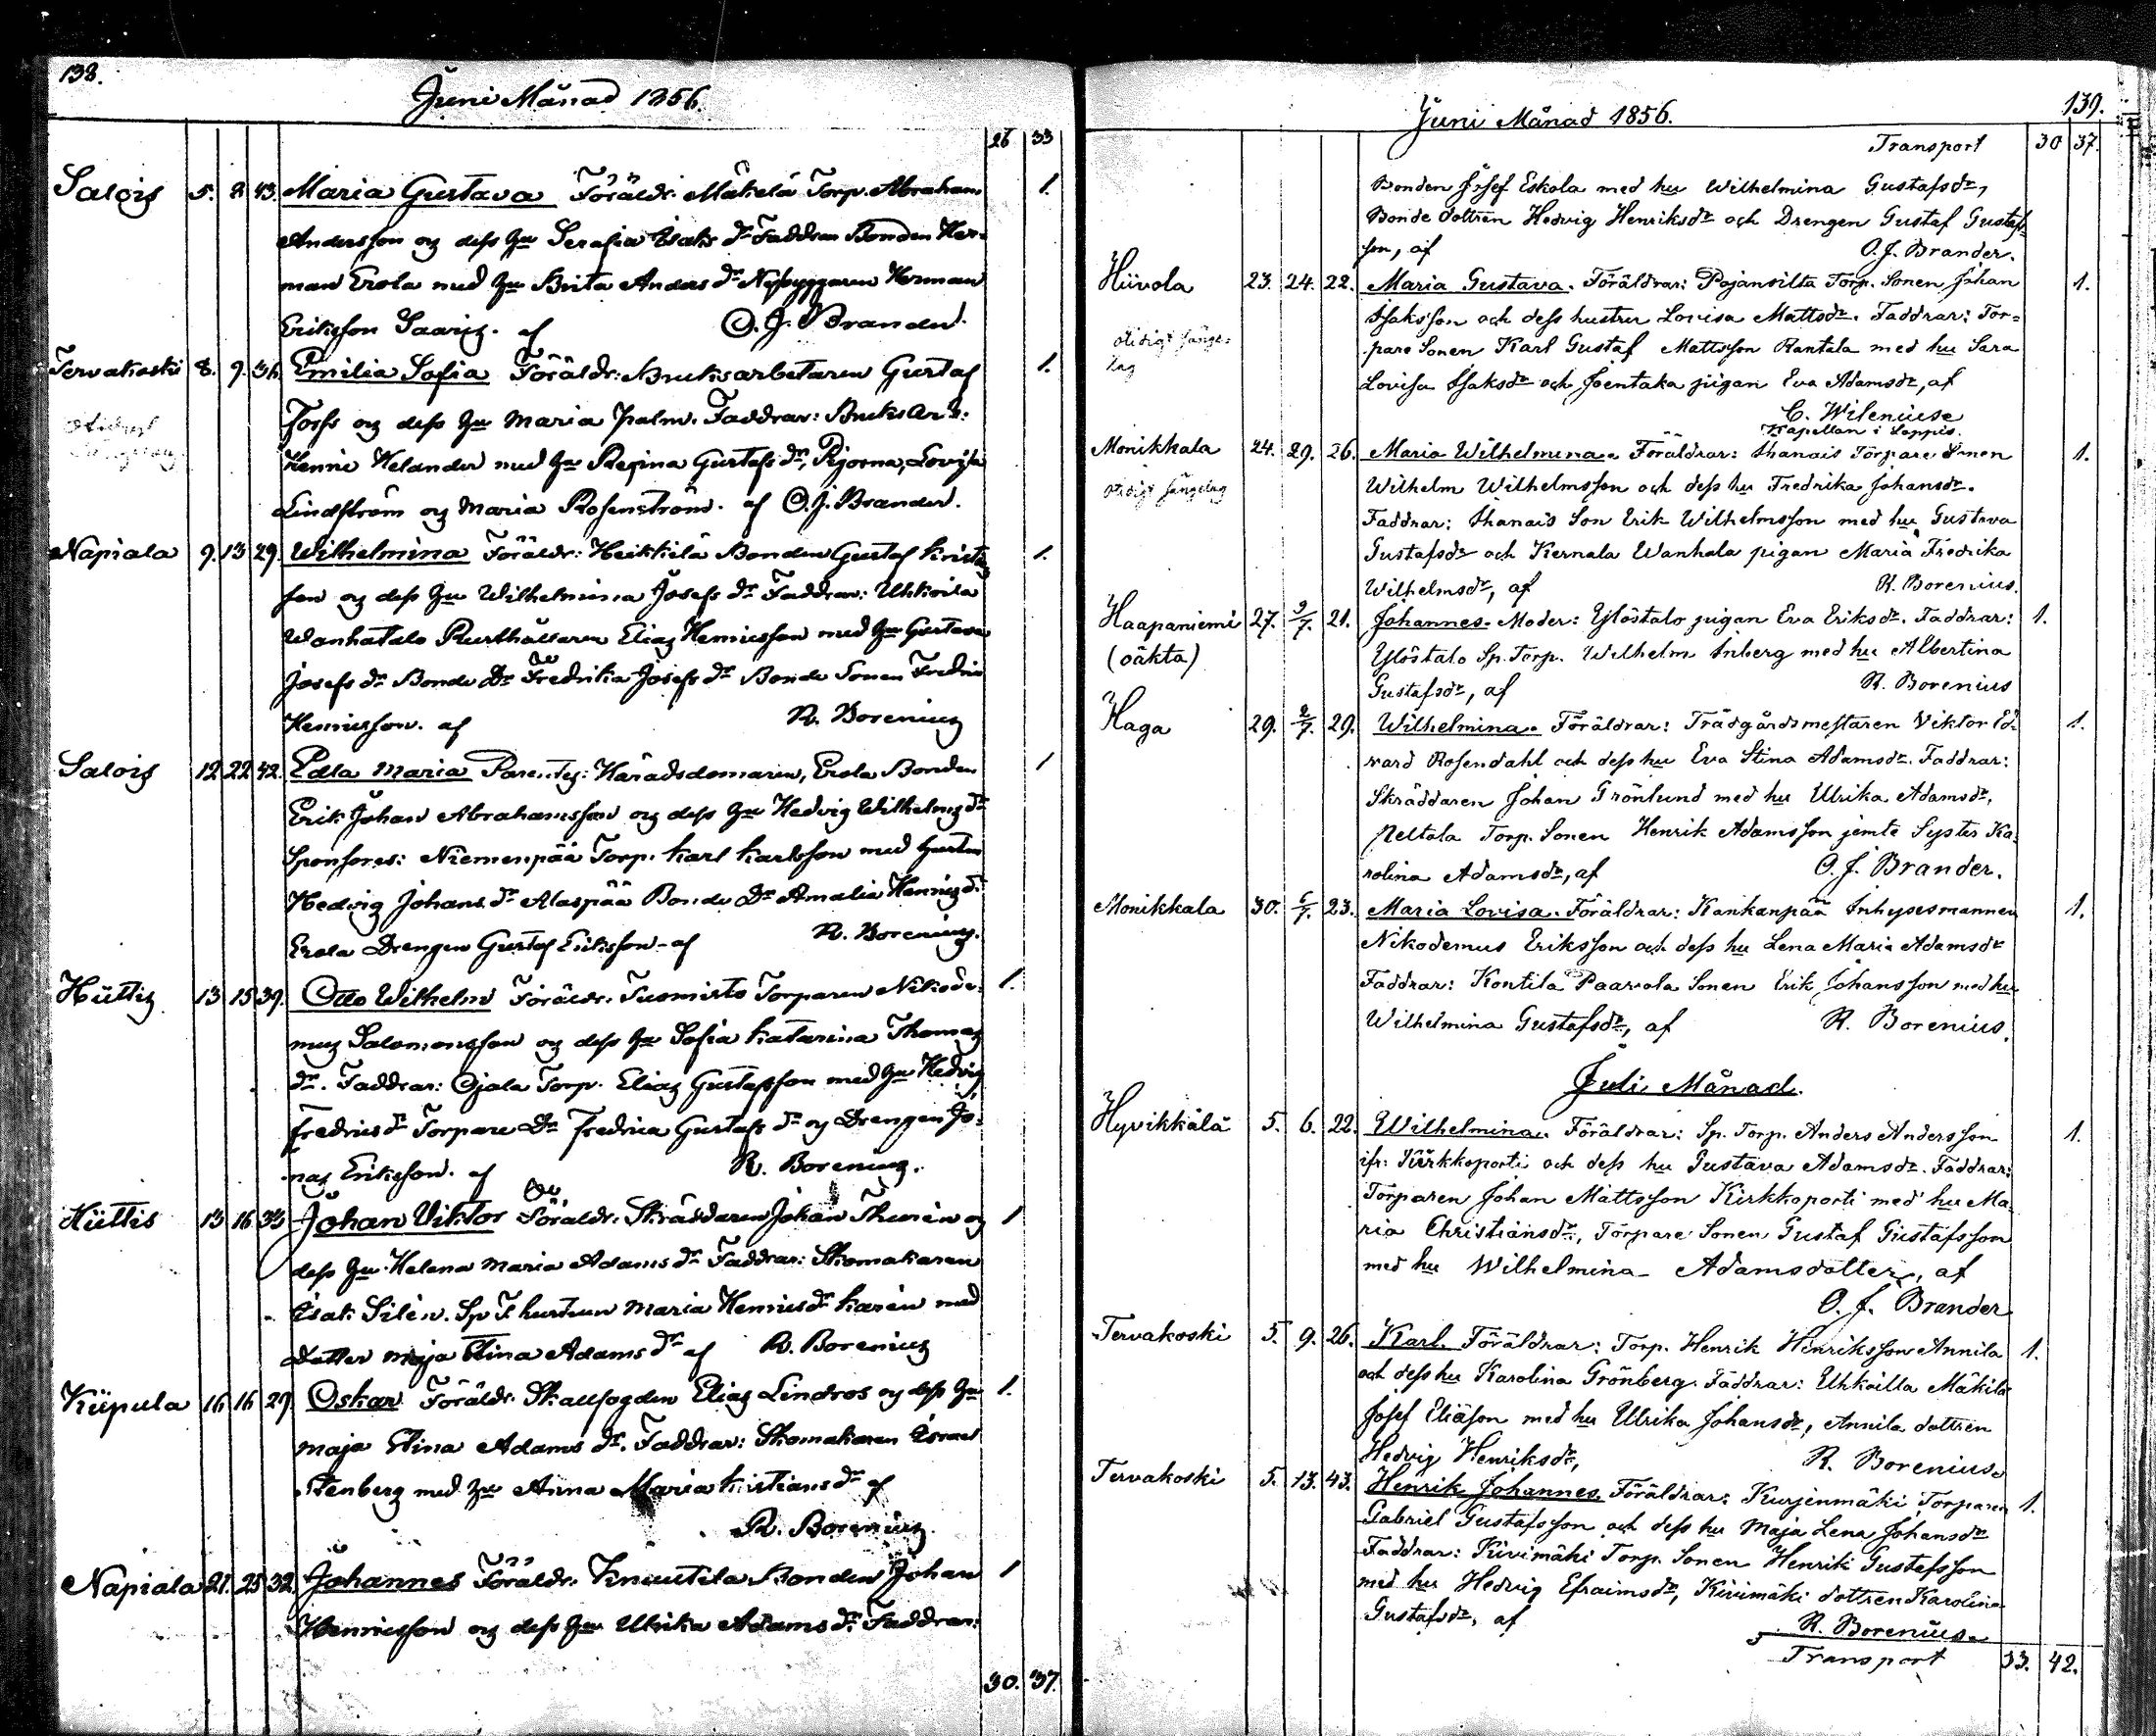 138.
Juni Månad 1856.
26 33
Salois 5. 8 43. Maria Gustava Föräldr. Mäkelä Torp. Abraham 1.
Andersson og dess hu Serafia Isaks dr Faddrar Bonden Her-
man Erola med hu Brita Anders dr Nybyggaren Herman
Eriksson Saaris. af O. J. Brander.
Tervakoski 8. 9. 36. Emilia Sofia Föräldr: Bruksarbetaren Gustaf 1.
Forss og dess hu Maria Palm. Faddrar: Bruks Arb:
Henric Helander med hu Regina Gustafs dr, Pigorna, Lovisa
Lindström og Maria Rosenström. af O. J. Brander.
Napiala 9. 13 29. Wilhelmina Föräldr: Heikkilä Bonden Gustaf Kristians 1.
son og dess hu Wilhelmina Josefs dr Faddrar: Uhkoila
Wanhatalo Rusthållaren Elias Henricsson med hu Gustava
Josefs dr Bonde Dr Fredrika Josefs dr Bonde Sonen Fredric
Henricsson. af R. Borenius
Salois 12 22 42. Edla Maria Parentes: Häradsdomaren, Erola Bonden 1
Erik Johan Abrahamsson og dess hu Hedvig Wilhelms dr
Sponsores: Niemenpää Torp. Karl Karlsson med hustru
Hedvig Johans dr Alaspää Bonde Dr Amalia Henrics dr
Erola Drengen Gustaf Eriksson - af R. Borenius.
Hiittis 13 15 39. Otto Wilhelm Föräldr. Tuomisto Torparen Nikode- 1.
mus Salomonsson og dess hu Sofia Katarina Thomas
dr. Faddrar: Ojala Torp. Elias Gustafsson med hu Hedvig
Fredrics dr Torpare Dr Fredrica Gustafs dr og Drengen Jo-
nas Eriksson. af R. Borenius.
Hiittis 13 16 33 Johan Viktor Föräldr. Skräddaren Johan Thurén og 1
dess hu Helena Maria Adams dr Faddrar: Skomakaren
Isak Silén. Sp T. hustrun Maria Henrics dr Karén med
dotter Maja Stina Adams dr af R. Borenius
Kiipula 16 16 29 Oskar Föräldr. Skallfogden Elias Lindros og dess hu 1.
Maja Stina Adams dr. Faddrar: Skomakaren Israel
Stenberg med hu Anna Maria Kristians dr af
R. Borenius.
Napiala 21. 25 32. Johannes Föräldr. Knuutila Bonden Johan 1
Henricsson og dess hu Ulrika Adams dr. Faddrar:
30. 37.
Juni Månad 1856. 139.
Transport 30 37.
Bonden Josef Eskola med hu Wilhelmina Gustafsdr,
Bonde dottren Hedvig Henriksdr och Drengen Gustaf Gustafs-
son, af O. J. Brander.
Hiivola 23. 24. 22. Maria Gustava. Föräldrar: Pajansilta Torp. Sonen Johan 1.
Isaksson och dess hustru Lovisa Mattsdr. Faddrar: Tor-
otidigt sänge-
lag
pare Sonen Karl Gustaf Mattsson Rantala med hu Sara
Lovisa Isaksdr och Joentaka pigan Eva Adamsdr, af
C. Wilenius.
Kapellan i Loppis.
Monikkala 24. 29. 26. Maria Wilhelmina. Föräldrar: Ihanais Torpare Sonen 1.
otidigt sängelag
Wilhelm Wilhelmsson och dess hu Fredrika Johansdr.
Faddrar: Ihanais Son Erik Wilhelmsson med hu Gustava
Gustafsdr och Kernala Wanhala pigan Maria Fredrika
Wilhelmsdr, af R. Borenius.
Haapaniemi 27. 9/7. 21. Johannes. Moder: Ylöstalo pigan Eva Eriksdr. Faddrar: 1.
(oäkta) Ylöstalo Sp. Torp. Wilhelm Inberg med hu Albertina
Gustafsdr, af R. Borenius
Haga 29. 2/7. 29. Wilhelmina. Föräldrar: Trädgårdsmestaren Viktor Ed- 1.
vard Rosendahl och dess hu Eva Stina Adamsdr. Faddrar:
Skräddaren Johan Grönlund med hu Ulrika Adamsdr,
Neltala Torp. Sonen Henrik Adamsson jemte Syster Ka-
rolina Adamsdr, af O. J. Brander.
Monikkala 30. 6/7. 23. Maria Lovisa. Föräldrar: Kankanpää Inhysesmannen 1.
Nikodemus Eriksson och dess hu Lena Maria Adamsdr
Faddrar: Kontila Paavola Sonen Erik Johansson med hu
Wilhelmina Gustafsdr, af R. Borenius.
Juli Månad.
Hyvikkälä 5. 6. 22. Wilhelmina. Föräldrar: Sp. Torp. Anders Andersson 1.
ifr. Kirkkoporti och dess hu Gustava Adamsdr. Faddrar:
Torparen Johan Mattsson Kirkkoporti med hu Ma-
ria Christiansdr, Torpare Sonen Gustaf Gustafsson
med hu Wilhelmina Adamsdotter, af
O. J. Brander
Tervakoski 5. 9. 26. Karl. Föräldrar: Torp. Henrik Hinriksson Annila 1.
och dess hu Karolina Grönberg. Faddrar: Uhkoilla Mäkilä
Josef Eliasson med hu Ulrika Johansdr, Annila dottren
Hedvig Henriksdr, R. Borenius.
Tervakoski 5. 13. 43. Henrik Johannes. Föräldrar: Kurjenmäki Torparen 1.
Gabriel Gustafsson och dess hu Maja Lena Johansdr
Faddrar: Kivimäki Torp. Sonen Henrik Gustafsson
med hu Hedvig Efraimsdr, Kivimäki dottren Karolina
Gustafsdr, af
R. Borenius.
Transport 33. 42.